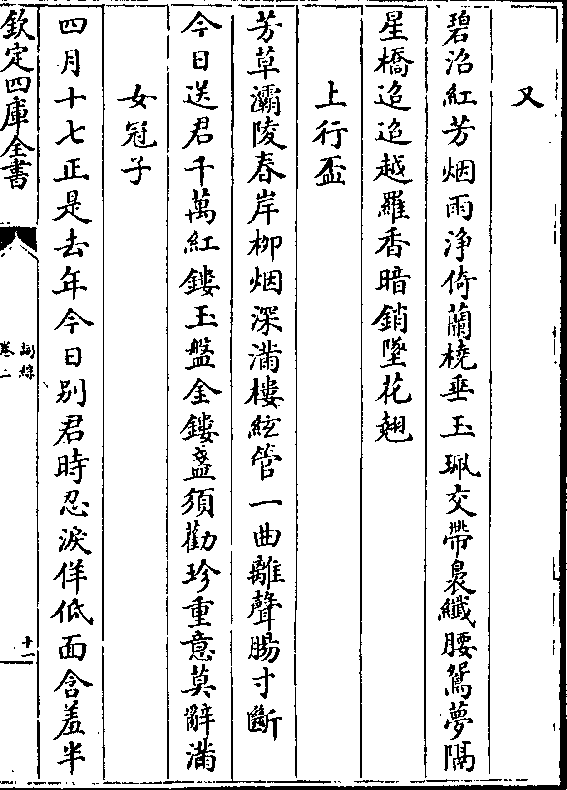 又
碧沼紅芳烟雨淨倚蘭橈垂玉珮交帶裊纖腰鴛夢隔
星橋迢迢越羅香暗銷墜花翹
上行盃
芳草灞陵春岸柳烟深滿樓絃管一曲離聲腸寸斷
今日送君千萬紅鏤玉盤金鏤盞須勸珍重意莫辭滿
女冠子
四月十七正是去年今日别君時忍淚佯低面含羞半
欽定四庫全書
詞綜
卷二
十一